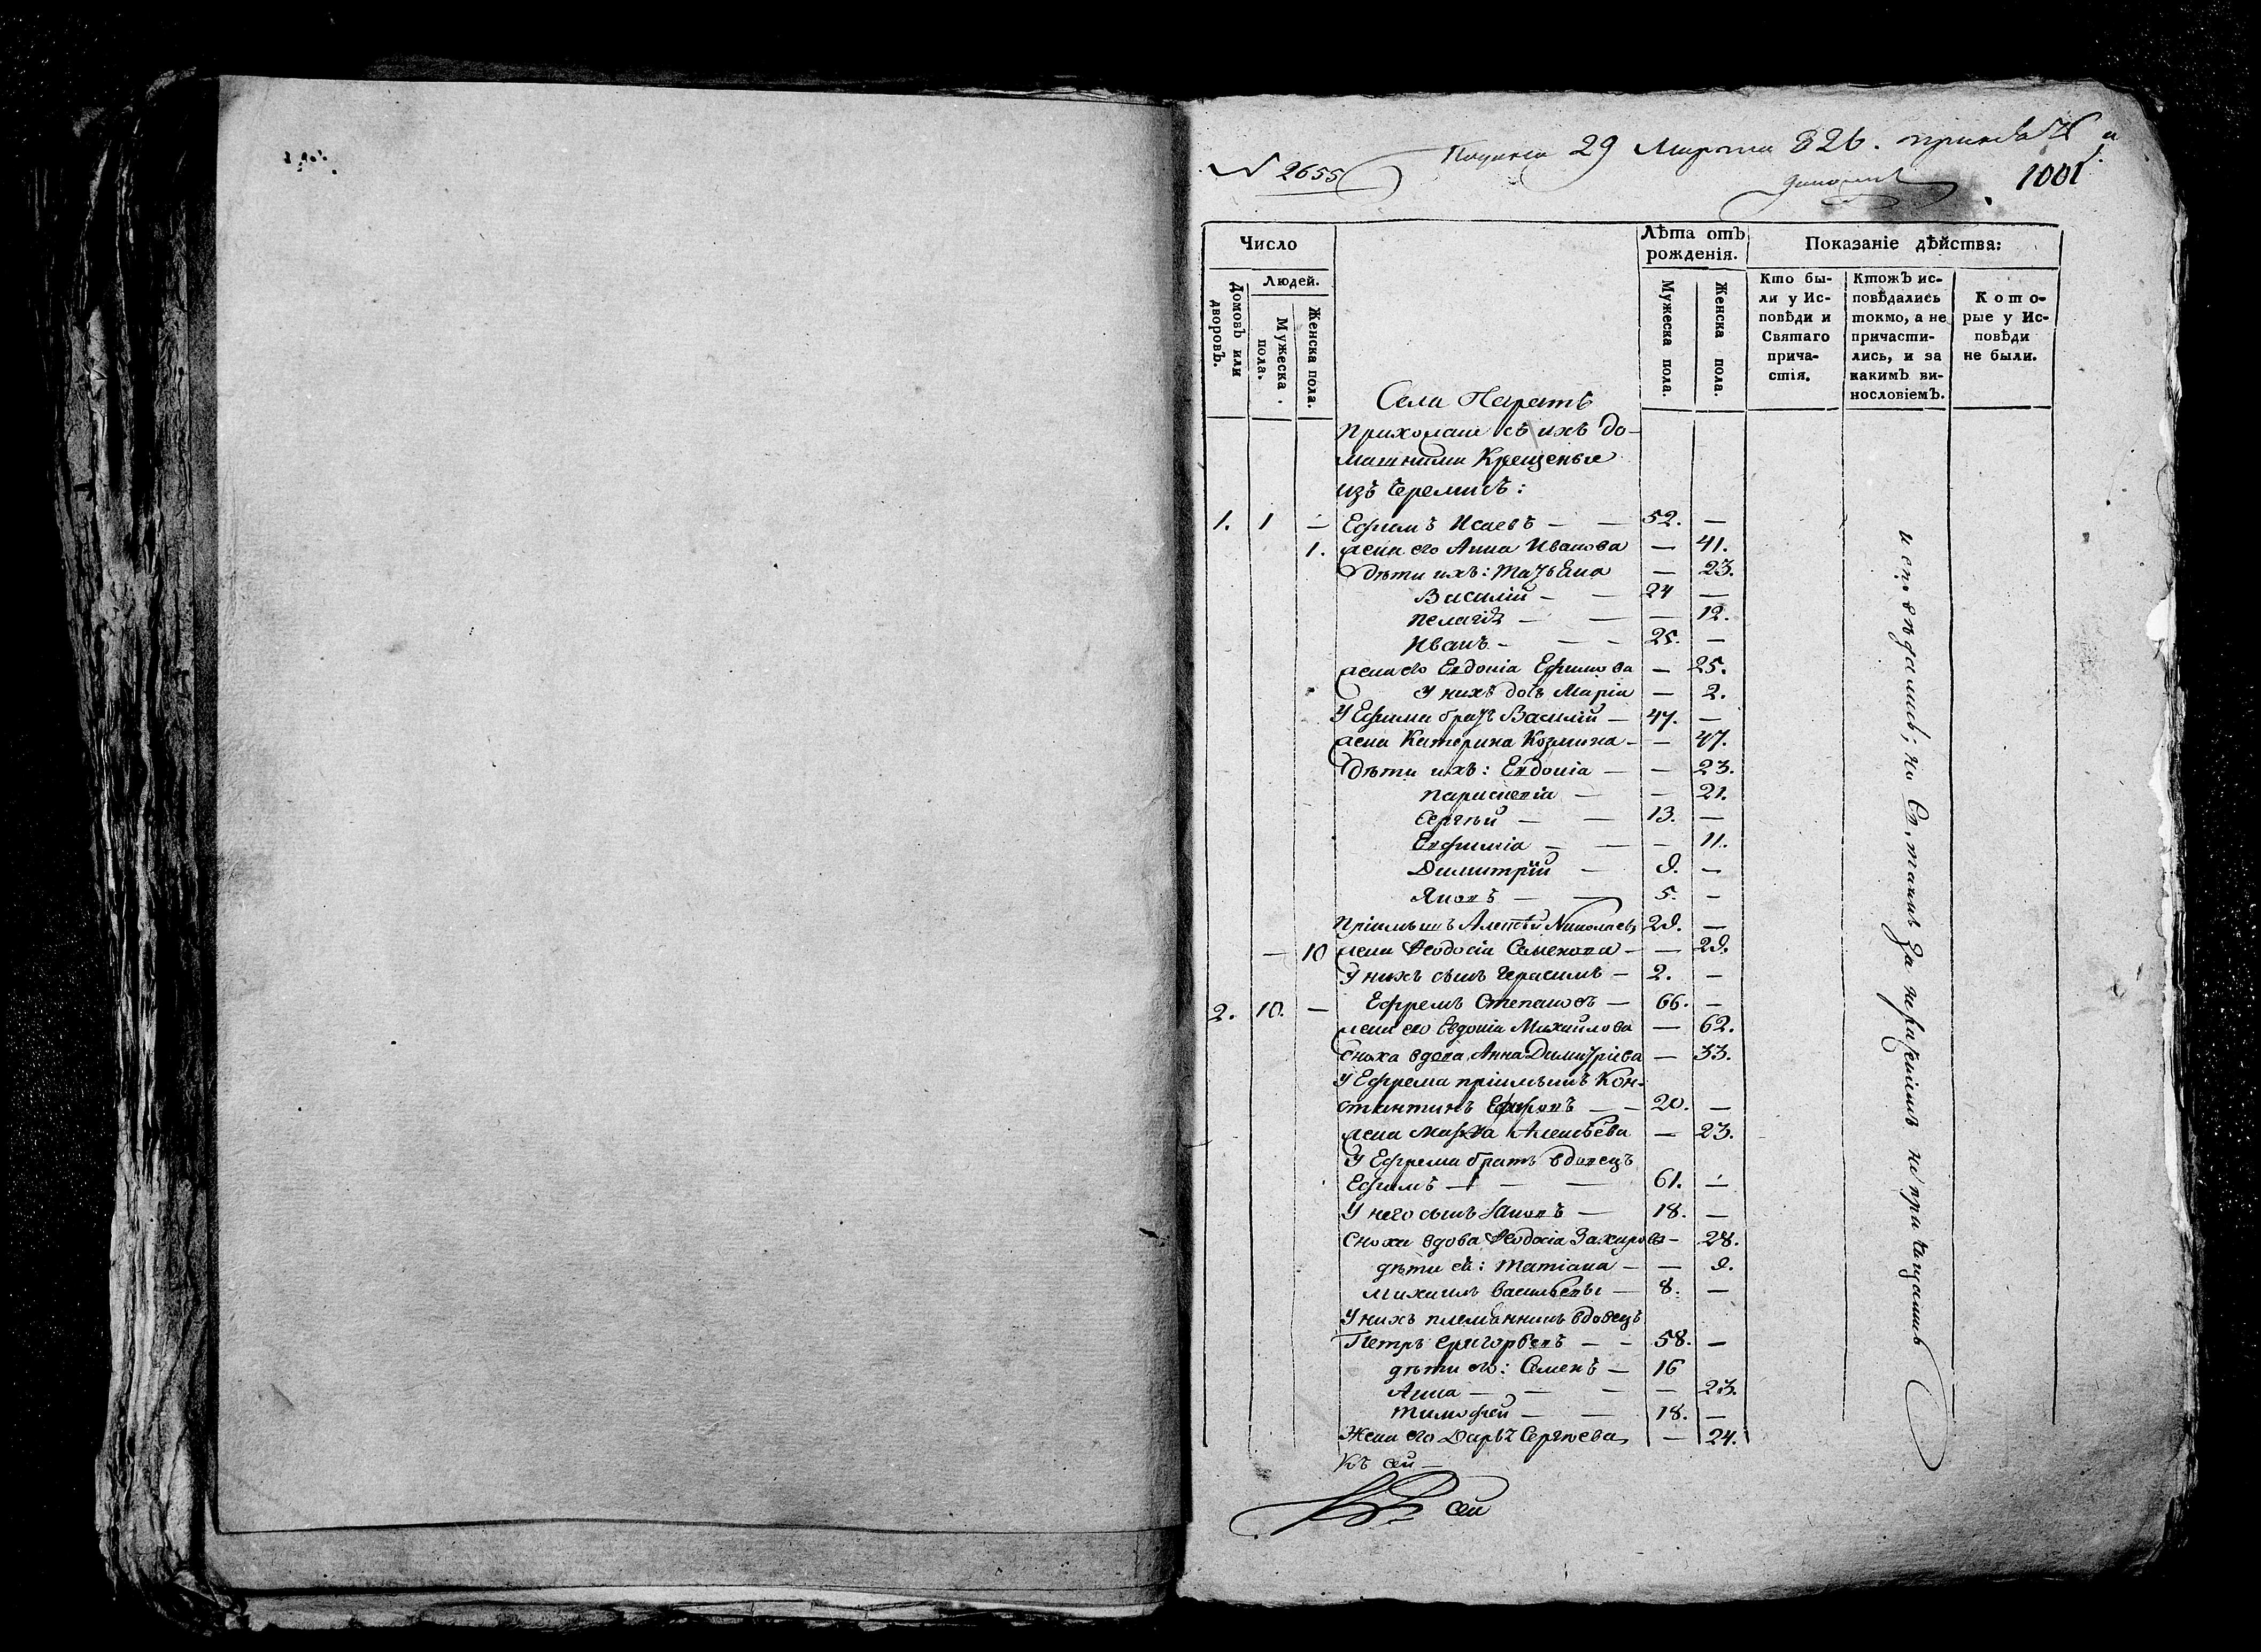 № 2655
29 Марта 826.
1001
Число
Людей.
Домовъ или дворовъ.
Мужеска пола.
Женска пола.
Лѣта отъ рожденія.
Мужеска пола.
Женска пола.
Показаніе дѣйства:
Кто бы-
ли у Ис-
повѣди и
Святаго
прича-
стія.
Ктожъ ис-
повѣдались
токмо, а не
причасти-
лись, и за
какимъ ви-
нословіемъ.
Кото-
рые у Ис-
повѣди
не были.
Села Паратъ
Прихожане съ ихъ до-
машними Крещеные
изъ Черемисъ:
1. 1 — Ефимъ Исаевъ — — 52. —
1. жена его Анна Иванова — 41.
Дѣти ихъ: Татьяна — 23.
Василій — — 24 —
Пелагія — — — 12.
Иванъ — — — 25. —
жена его Евдокіа Ефимова — 25.
У нихъ дочь Маріа — 2.
У Ефима братъ Василій — 47. —
жена Катерина Козмина — — 47.
Дѣти ихъ: Евдокіа — — 23.
Параскевіа — — 21.
Сергѣй — — 13. —
Евфиміа — — — 11.
Димитрій — 9. —
Яковъ — — 5. —
Пріимышъ Алексѣй Николаевъ 29. —
— 10 жена Ѳеодосіа Семенова — — 29.
У нихъ сынъ Герасимъ — 2. —
2. 10. — Ефремъ Степановъ — 66. —
жена его Евдокіа Михайлова — 62.
Сноха вдова Анна Димитріева — 33.
У Ефрема пріимышъ Кон-
стантинъ — — 20. —
жена Марѳа Алексѣева — 23.
У Ефрема братъ вдовецъ
Ефимъ — — — 61. —
У него сынъ Іаковъ — 18. —
Сноха вдова Ѳеодосіа Захарова — 28.
дѣти ей: Татіана — — 9.
Михаилъ Васильевы — 8. —
У нихъ племянникъ вдовецъ
Петръ Григорьевъ — — 58. —
дѣти его: Семенъ — 16
Анна — — — — 23.
Тимофей — — 18. —
Жена его Дарья Сергѣева — 24.
Къ сей —
сей
исповѣдались; но Св. таинъ за нераченіемъ не причащались